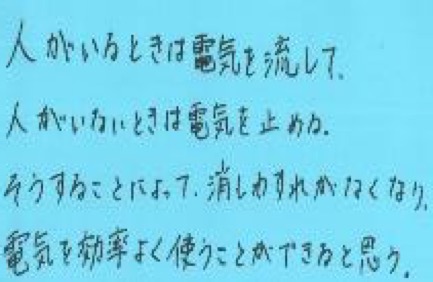 人がいるときは電気を流して、
人がいないときは電気を止める。
そうすることによって、消しわすれがなくなり、
電気を効率よく使うことができると思う。